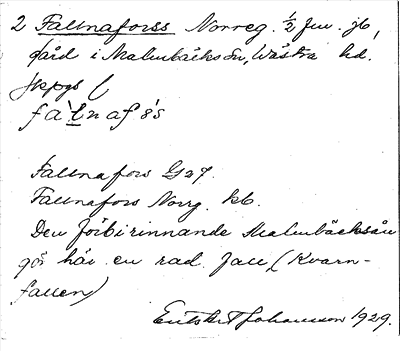 2 Fallnaforss Norreg. 1/2 fm. jb,
gård i Malmbäcks sn, Västra hd.
Jkpgs l
fa`l̲naf ɷ´s
Fallnafors G 27.
Fallnafors Norrg. kb.
Den förbirinnande Malmbäcksån
gör här en rad fall, (Kvarn-
fallen)
Johansson 1929.